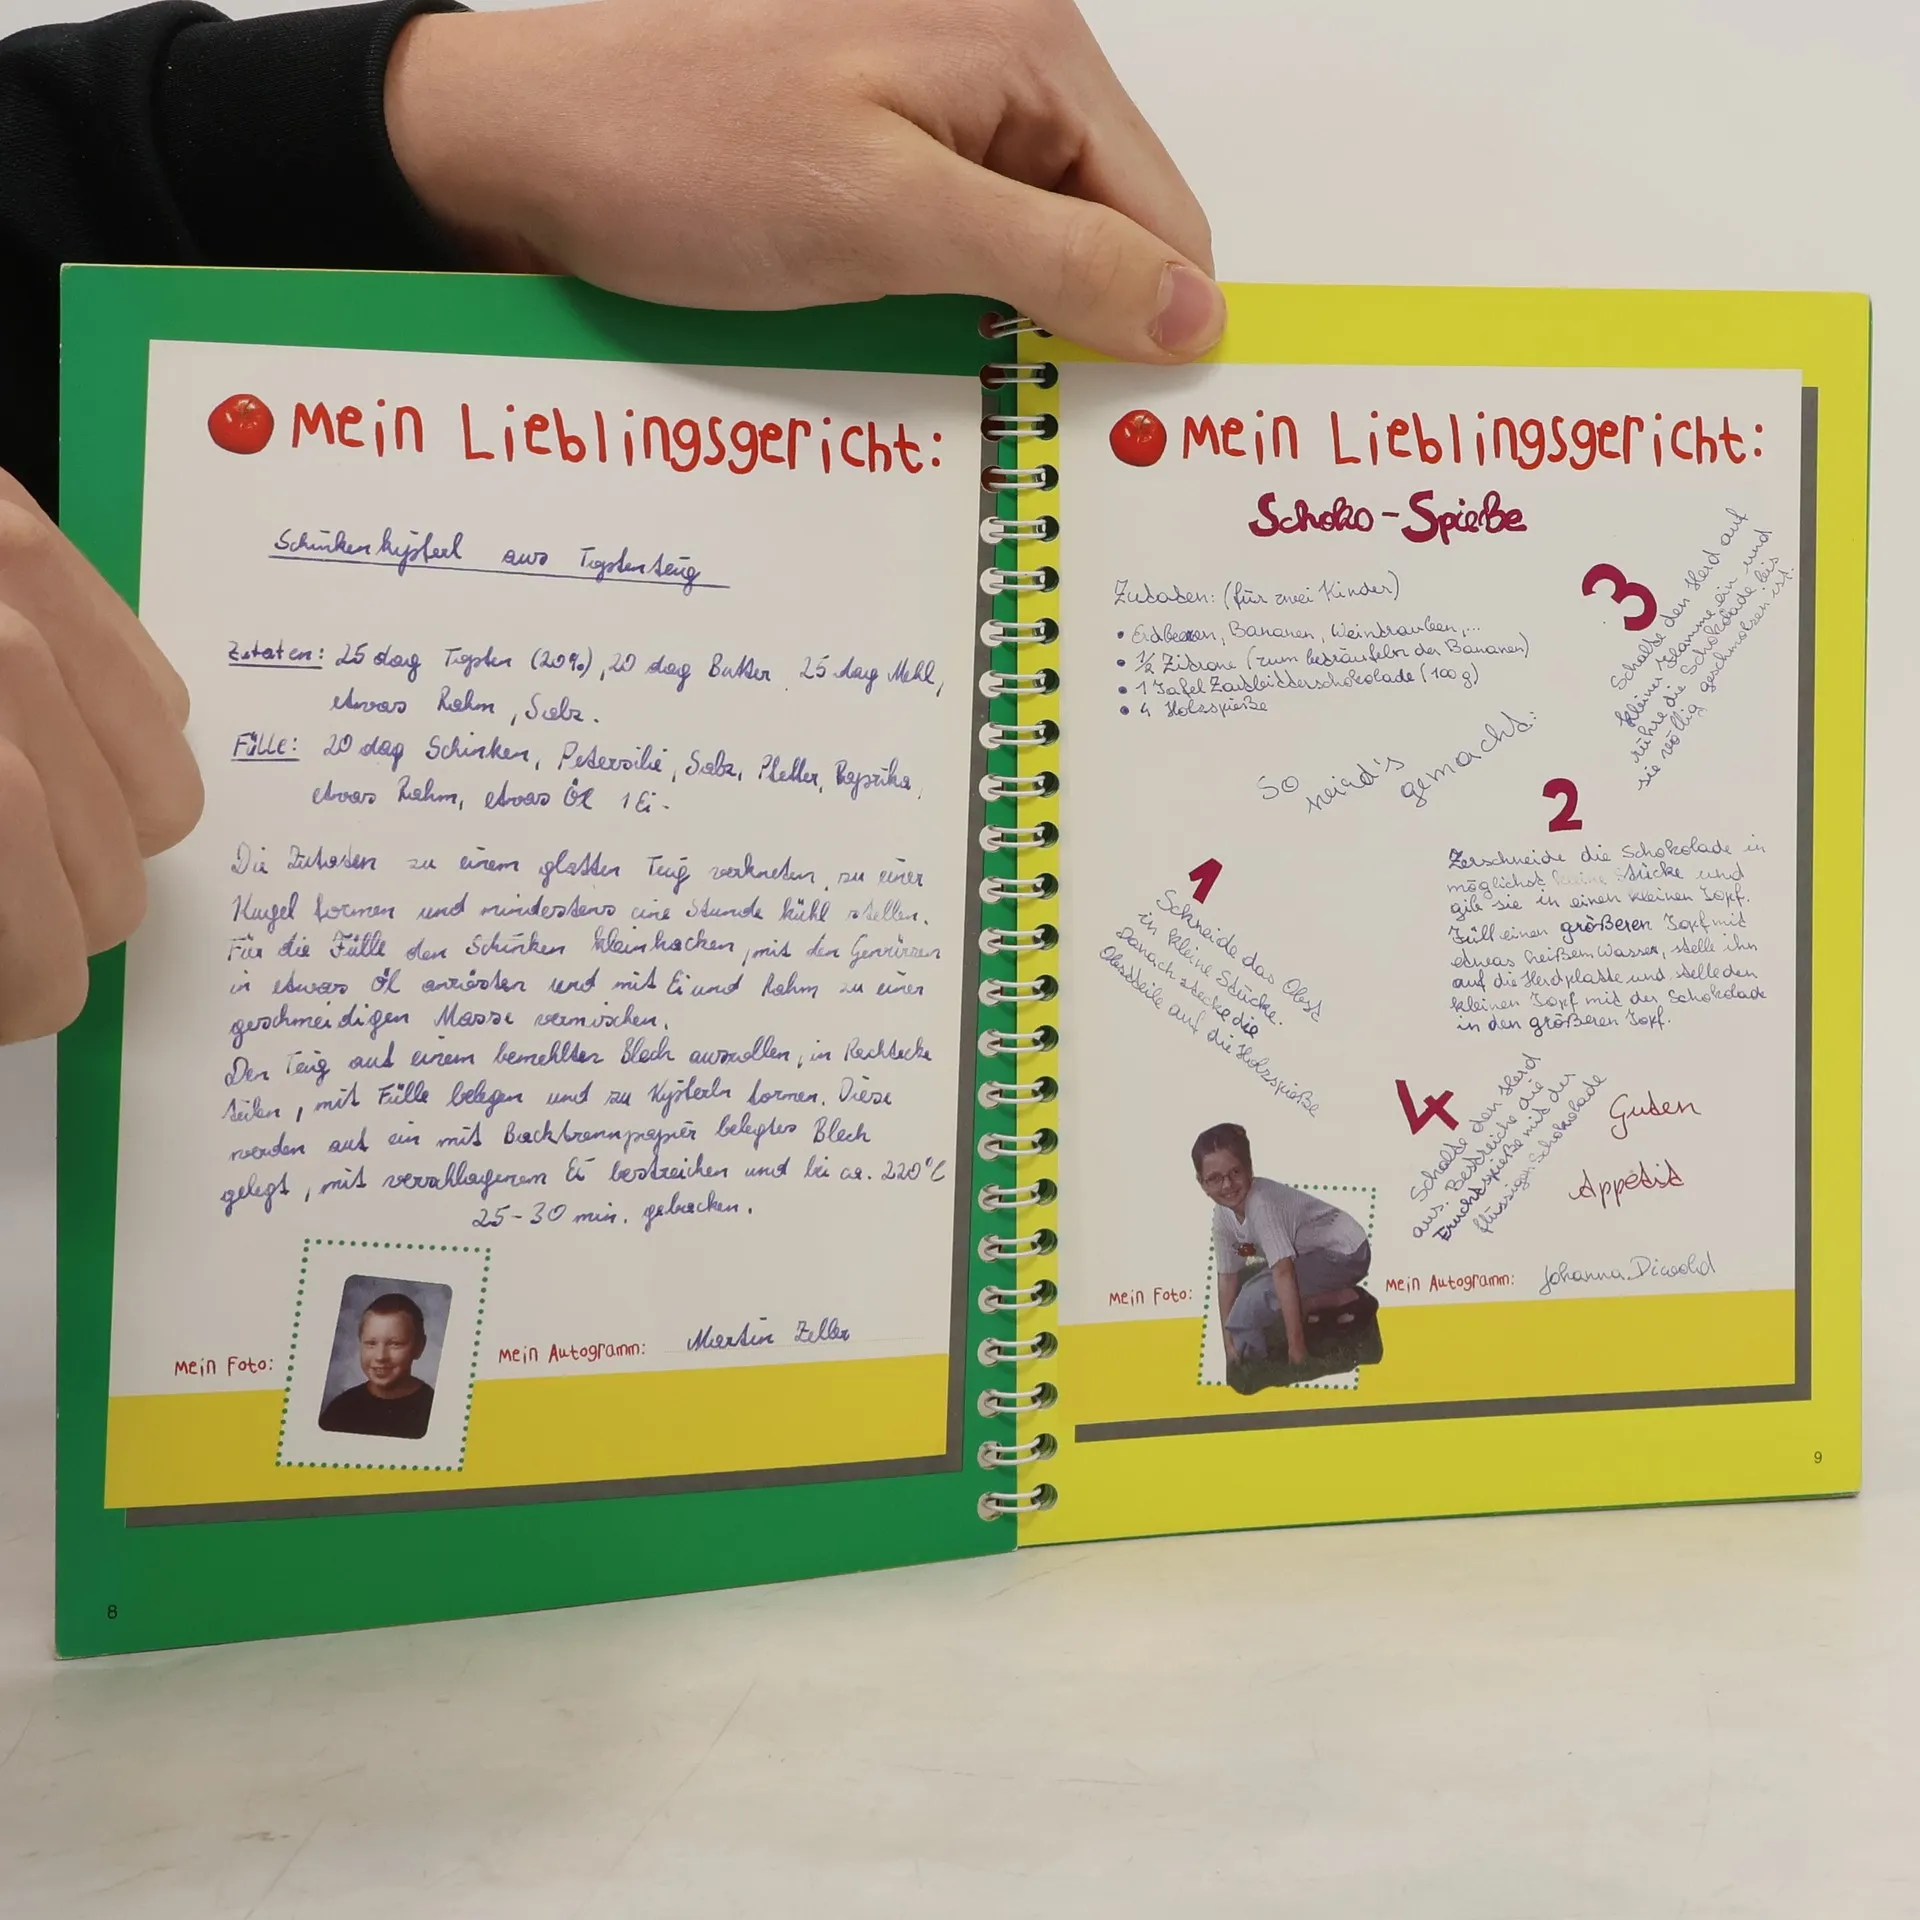 Mein Lieblingsgericht:
Schinkenkipferl aus Topfenteig
Zutaten: 25 dag Topfen (20%), 20 dag Butter, 25 dag Mehl,
etwas Rahm, Salz.
Fülle: 20 dag Schinken, Petersilie, Salz, Pfeffer, Paprika,
etwas Rahm, etwas Öl 1 Ei.
Die Zutaten zu einem glatten Teig verkneten, zu einer
Kugel formen und mindestens eine Stunde kühl stellen.
Für die Fülle den Schinken kleinhacken, mit den Gewürzen
in etwas Öl anrösten und mit Ei und Rahm zu einer
geschmeidigen Masse vermischen.
Den Teig auf einem bemehlten Blech ausrollen, in Rechtecke
teilen, mit Fülle belegen und zu Kipferln formen. Diese
werden auf ein mit Backtrennpapier belegtes Blech
gelegt, mit verschlagenem Ei bestreichen und bei ca. 220°C
25-30 min. gebacken.
Mein Foto:
Mein Autogramm: Martin Zeller
8
Mein Lieblingsgericht:
Schoko-Spieße
Zutaten: (für zwei Kinder)
• Erdbeeren, Bananen, Weintrauben,...
• 1/2 Zitrone (zum beträufeln der Bananen)
• 1 Tafel Zartbitterschokolade (100 g)
• 4 Holzspieße
So wird's gemacht:
1
Schneide das Obst
in kleine Stücke.
Danach stecke die
Obstteile auf die Holzspieße
2
Zerschneide die Schokolade in
möglichst kleine Stücke und
gib sie in einen kleinen Topf.
Füll einen größeren Topf mit
etwas heißem Wasser, stelle ihn
auf die Herdplatte und stelle den
kleinen Topf mit der Schokolade
in den größeren Topf.
3
Schalte den Herd auf
kleiner Flamme ein und
rühre die Schokolade bis
sie völlig geschmolzen ist.
4
Schalte den Herd
aus. Bestreiche die
Fruchtspieße mit der
flüssigen Schokolade
Guten
Appetit
Mein Foto:
Mein Autogramm: Johanna
9